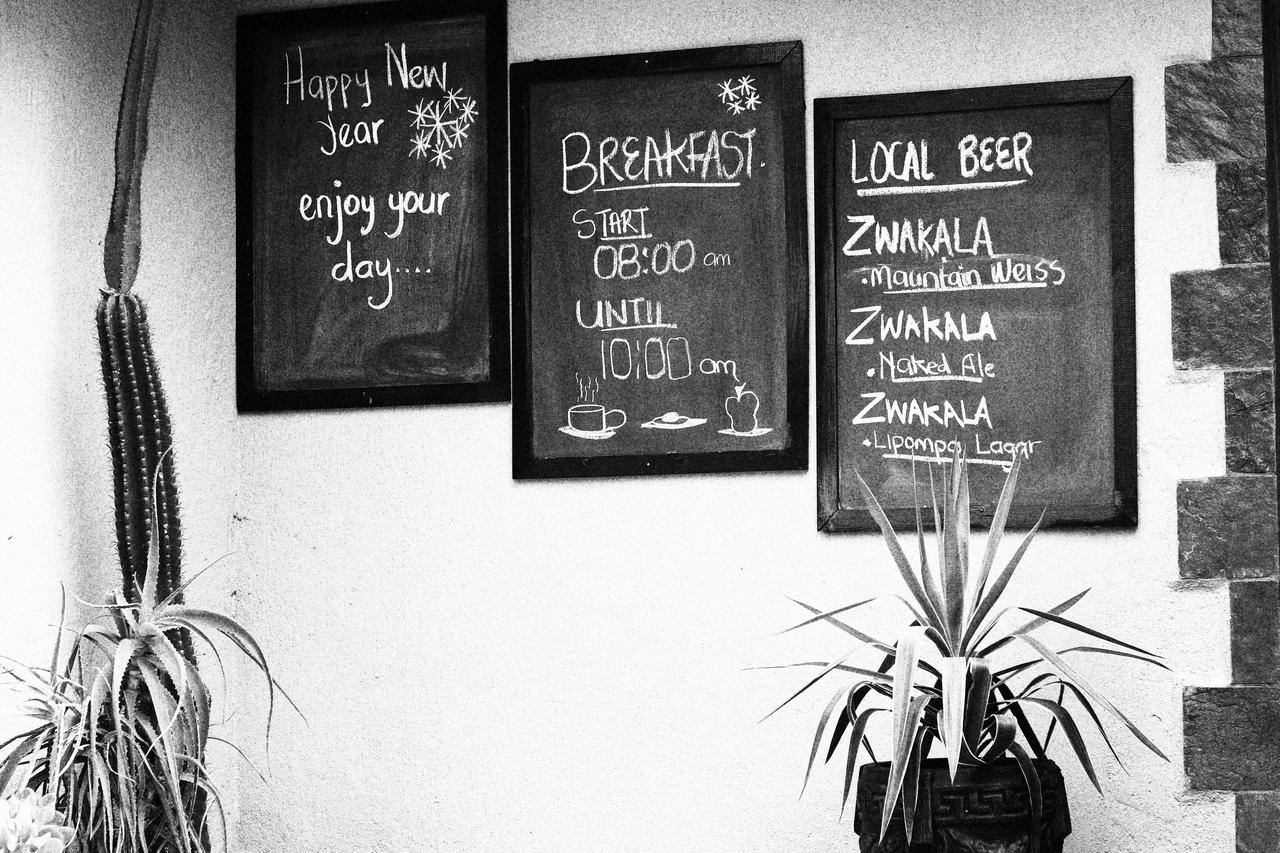 Happy New
Year
enjoy your
day....
BREAKFAST.
START
08:00 am
UNTIL
10:00 am
LOCAL BEER
ZWAKALA
•Mauntain Weiss
ZWAKALA
•Naked Ale
ZWAKALA
•Lipompo Lagar